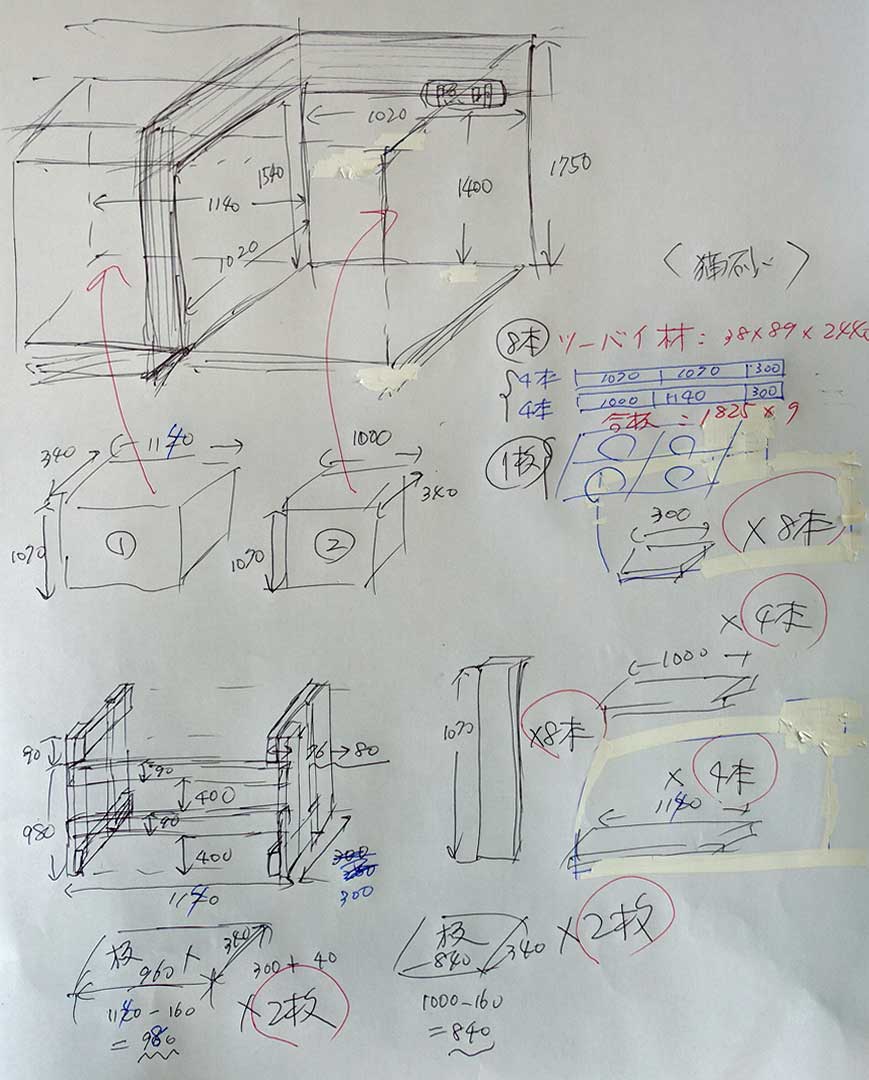 照明
1020
1540
1140
1400
1750
1020
〈猫砂〉
8本 ツーバイ材：38×89×2440
4本 1070 1070 300
4本 1000 1140 300
合板：1825×9
1枚
340 1140
1070 ①
1000
340
1070 ②
300
×8本
×4本
1000
1070
×8本
×4本
1140
90
90
36 80
400
980
90
400
300
1140
板
960
340
300+40
1140-160
=980
×2枚
板
840 340
×2枚
1000-160
=840